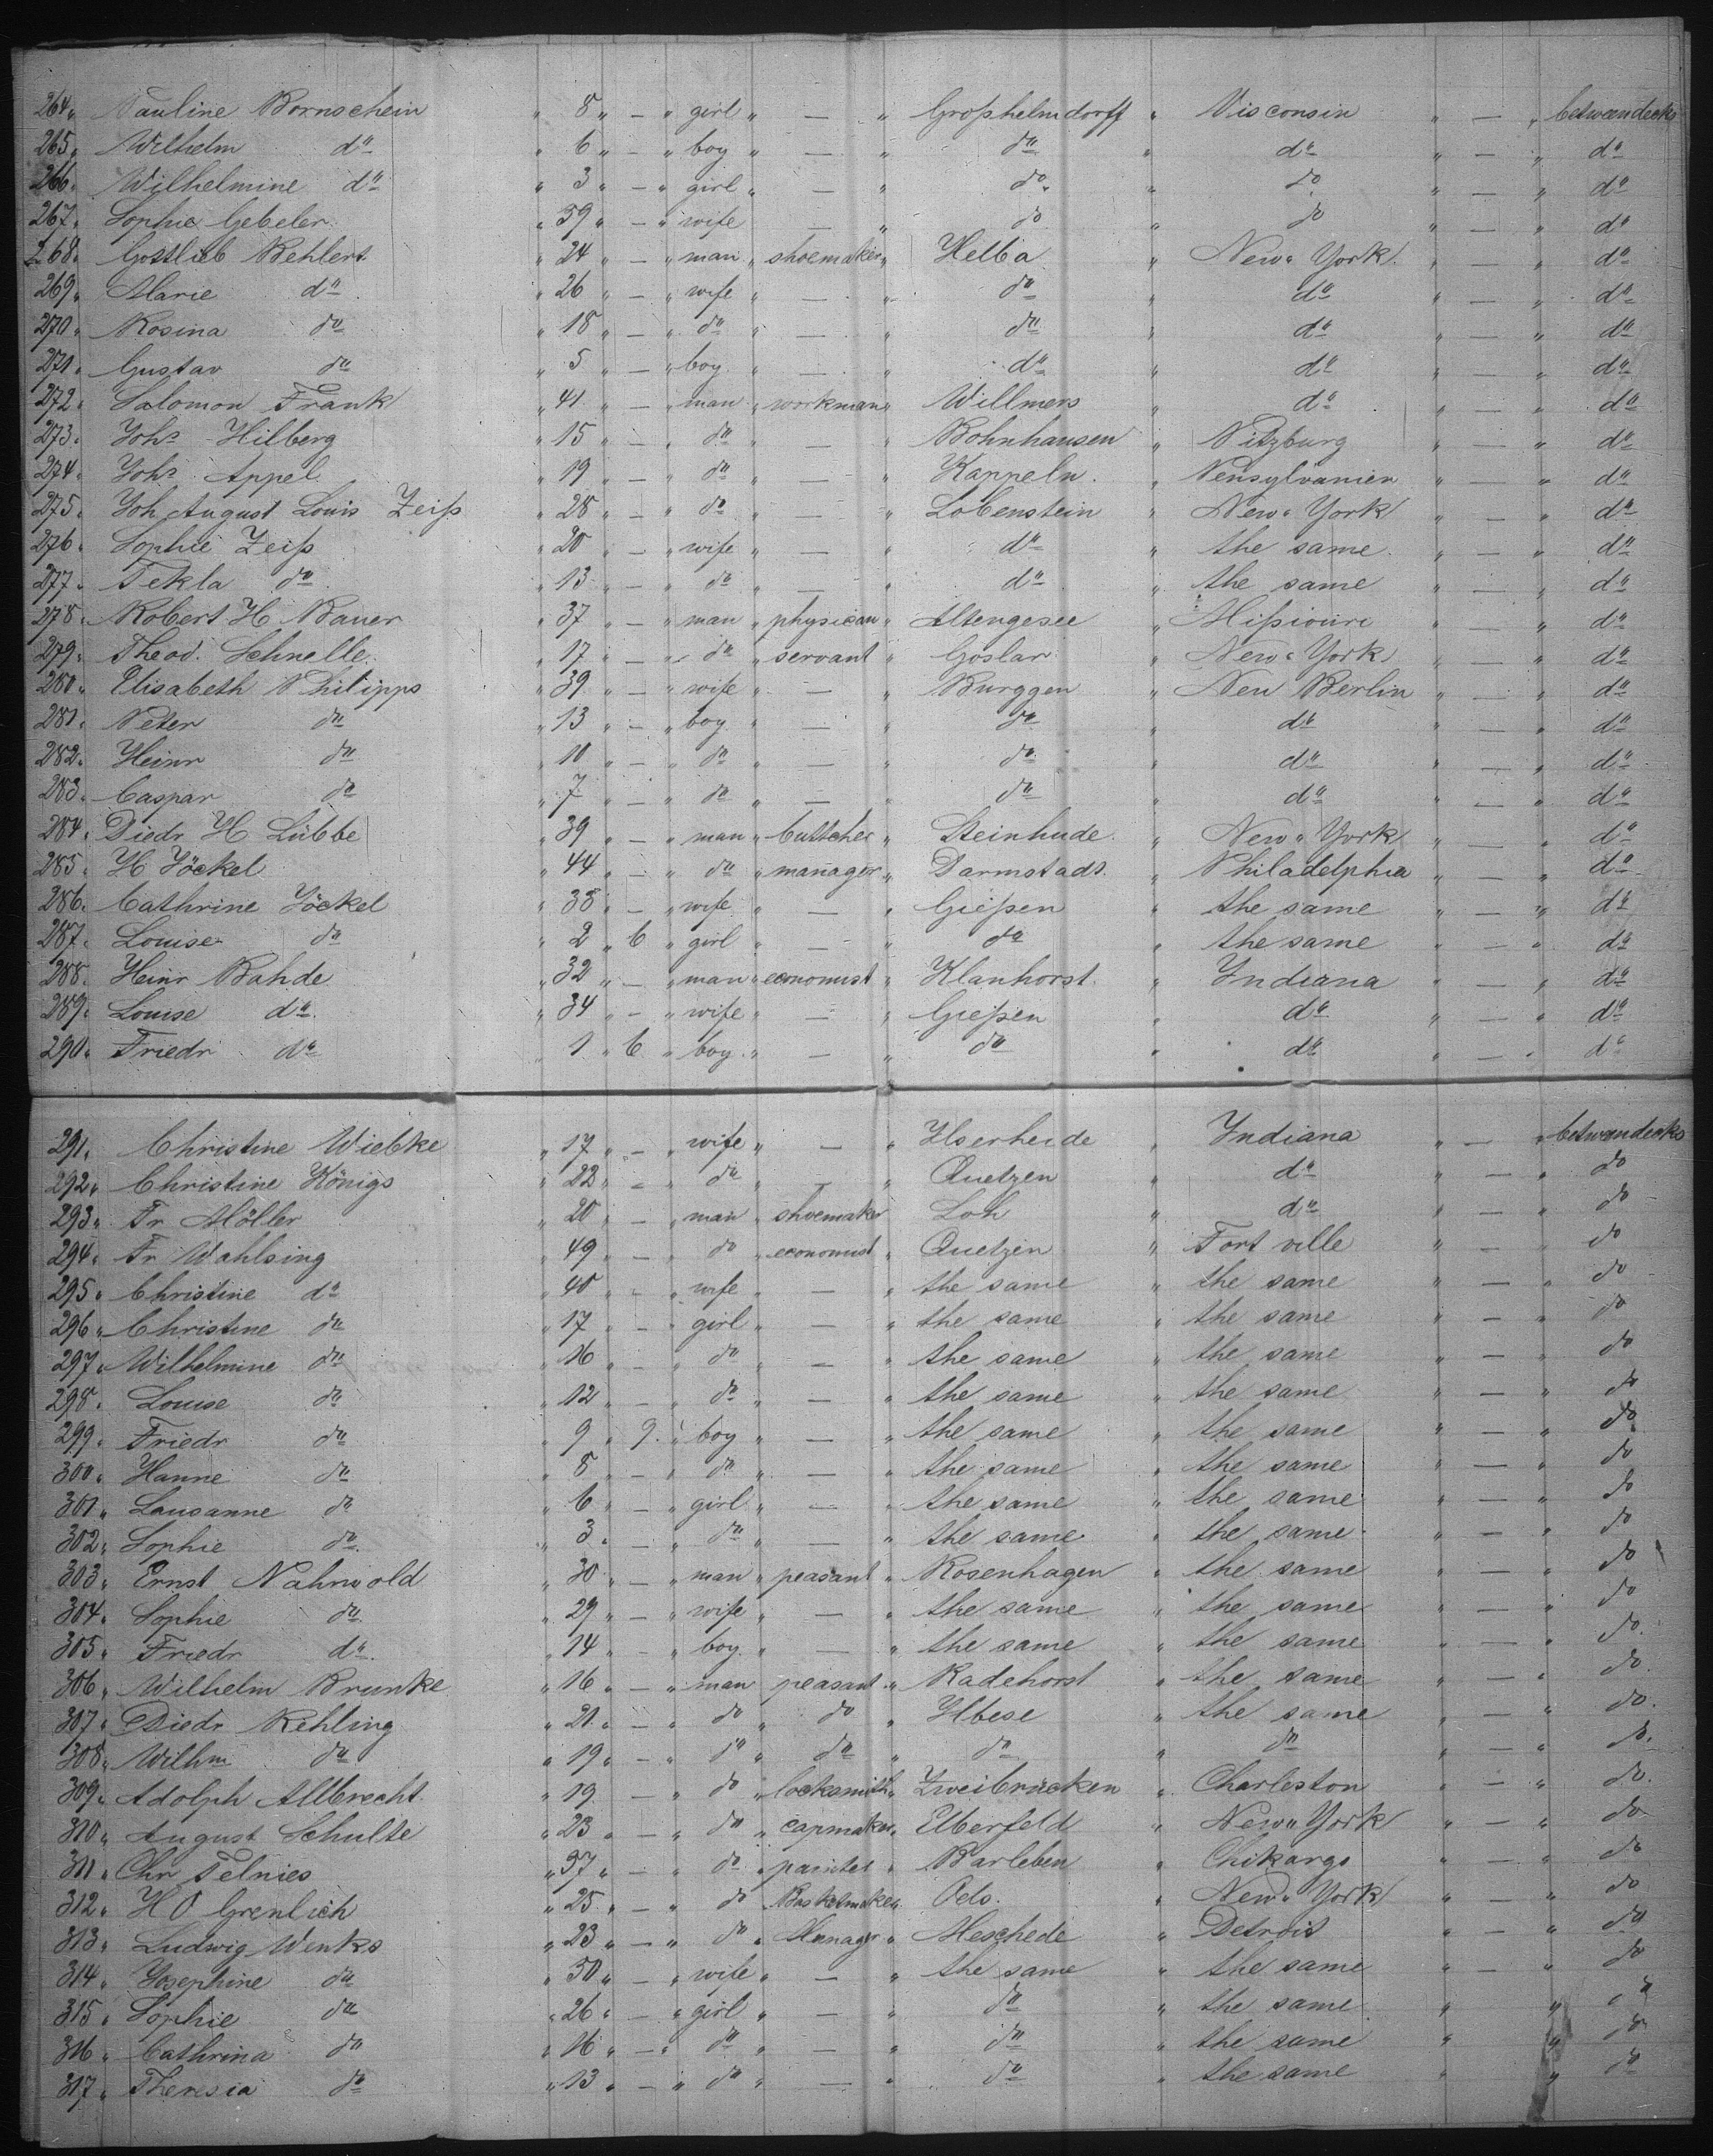 264 " Pauline Bornschein " 8 " — " girl " — " Großhelmdorff " Wisconsin " — " betweendecks
265 " Wilhelm do " 6 " — " boy " — " do " do " — " do
266 " Wilhelmine do " 3 " — " girl " — " do " do " — " do
267 " Sophie Gebeler " 59 " — " wife — " do " do " — " do
268 " Gottlieb Behlert " 24 " — " man " shoemaker " Helba " New York " — " do
269 " Marie do " 26 " — " wife " — " do " do " — " do
270 " Rosina do " 18 " — " do " — " do " do " — " do
271 " Gustav do " 5 " — " boy " — " do " do " — " do
272 " Salomon Frank " 41 " — " man " workman " Willmers " do " — " do
273 " Johs Hilberg " 15 " — " do — " Bohnhausen " Pitzburg " — " do
274 " Johs Appel " 19 " — " do " — " Kappeln " Pensylvanien " — " do
275 " Joh August Louis Zeiß " 28 " — " do " — " Lobenstein " New York " — " do
276 " Sophie Zeiß " 20 " — " wife " — " do " the same " — " do
277 " Tekla do " 13 " — " do " — " do " the same " — " do
278 " Robert H Bauer " 37 " — " man " physican " Altengesee " Mißiouri " — " do
279 " Theod. Schnelle " 17 " — " do " servant " Goslar " New York " — " do
280 " Elisabeth Philipps " 39 " — " wife " — " Burggen " New Berlin " — " do
281 " Peter do " 13 " — " boy " — " do " do " — " do
282 " Heinr do " 10 " — " do " — " do " do " — " do
283 " Caspar do " 7 " — " do " — " do " do " — " do
284 " Diedr H Lübbe " 39 " — " man " buttcher " Steinhude " New York " — " do
285 " H Jöckel " 44 " — " do " manager " Darmstadt " Philadelphia " — " do
286 " Cathrine Jöckel " 38 " — " wife " — " Gießen " the same " — " do
287 " Louise do " 2 " 6 " girl " — " do " the same " — " do
288 " Heinr Bahde " 32 " — " man " economist " Klanhorst " Indiana " — " do
289 " Louise do " 34 " — " wife " — " Gießen " do " — " do
290 " Friedr do " 1 " 6 " boy " — " do " do " — " do
291 " Christine Wiebke " 17 " — " wife " — " Ilserheide " Indiana " — " betweendecks
292 " Christine Königs " 22 " — " do " — " Quetzen " do " — " do
293 " Fr Möller " 20 " — " man " shoemaker Loh " do " — " do
294 " Fr Wahlsing " 49 " — " do " economist " Quetzen " Fort ville " — " do
295 " Christine do " 40 " — " wife " — " the same " the same " — " do
296 " Christine do " 17 " — " girl " — " the same " the same " — " do
297 " Wilhelmine do " 16 " — " do " — " the same " the same " — " do
298 " Louise do " 12 " — " do " — " the same " the same " — " do
299 " Friedr do " 9 " 9 " boy " — " the same " the same " — " do
300 " Hanne do " 8 " — " do " — " the same " the same " — " do
301 " Lausanne do " 6 " — " girl " — " the same " the same " — " do
302 " Sophie do " 3 " — " do " — " the same " the same " — " do
303 " Ernst Nahrwold " 30 " — " man " peasant " Rosenhagen " the same " — " do
304 " Sophie do " 29 " — " wife " — " the same " the same " — " do
305 " Friedr do " 14 " — " boy " — " the same " the same " — " do
306 " Wilhelm Brunke " 16 " — " man " peasant " Radehorst " the same " — " do
307 " Diedr Rehling " 21 " — " do " do " Ilvese " the same " — " do
308 " Wilhm do " 19 " — " do " do " do " do " — " do
309 " Adolph Allbrecht " 19 " — " do " locksmith " Zweibrücken " Charleston " — " do
310 " August Schulte " 23 " — " do " capmaker " Elberfeld " New York " — " do
311 " Chr Telnies " 37 " — " do " painter " Barleben " Chikargo " — " do
312 " H O Grenlich " 25 " — " do Basketmaker " Oels " New York " — " do
313 " Ludwig Wenks " 23 " — " do " Manager " Meschede " Detroit " — " do
314 " Josephine do " 50 " — " wife " — " the same " the same " — " do
315 " Sophie do " 26 " — " girl " — " do " the same " " do
316 " Cathrina do " 16 " — " do " — " do " the same " " do
317 " Theresia do " 13 " — " do " — " do " the same " " do